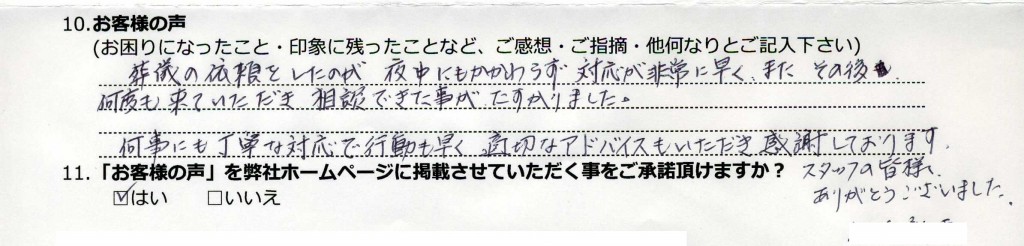 10.お客様の声
(お困りになったこと・印象に残ったことなど、ご感想・ご指摘・他何なりとご記入下さい)
葬儀の依頼をしたのが 夜中にもかかわらず 対応が非常に早く、また その後も、
何度も 来ていただき 相談できた事が たすかりました。
何事にも丁寧な対応で行動も早く 適切なアドバイスもいただき 感謝しております。
11.「お客様の声」を弊社ホームページに掲載させていただく事をご承諾頂けますか？
スタッフの皆様、
☑はい □いいえ
ありがとうございました。